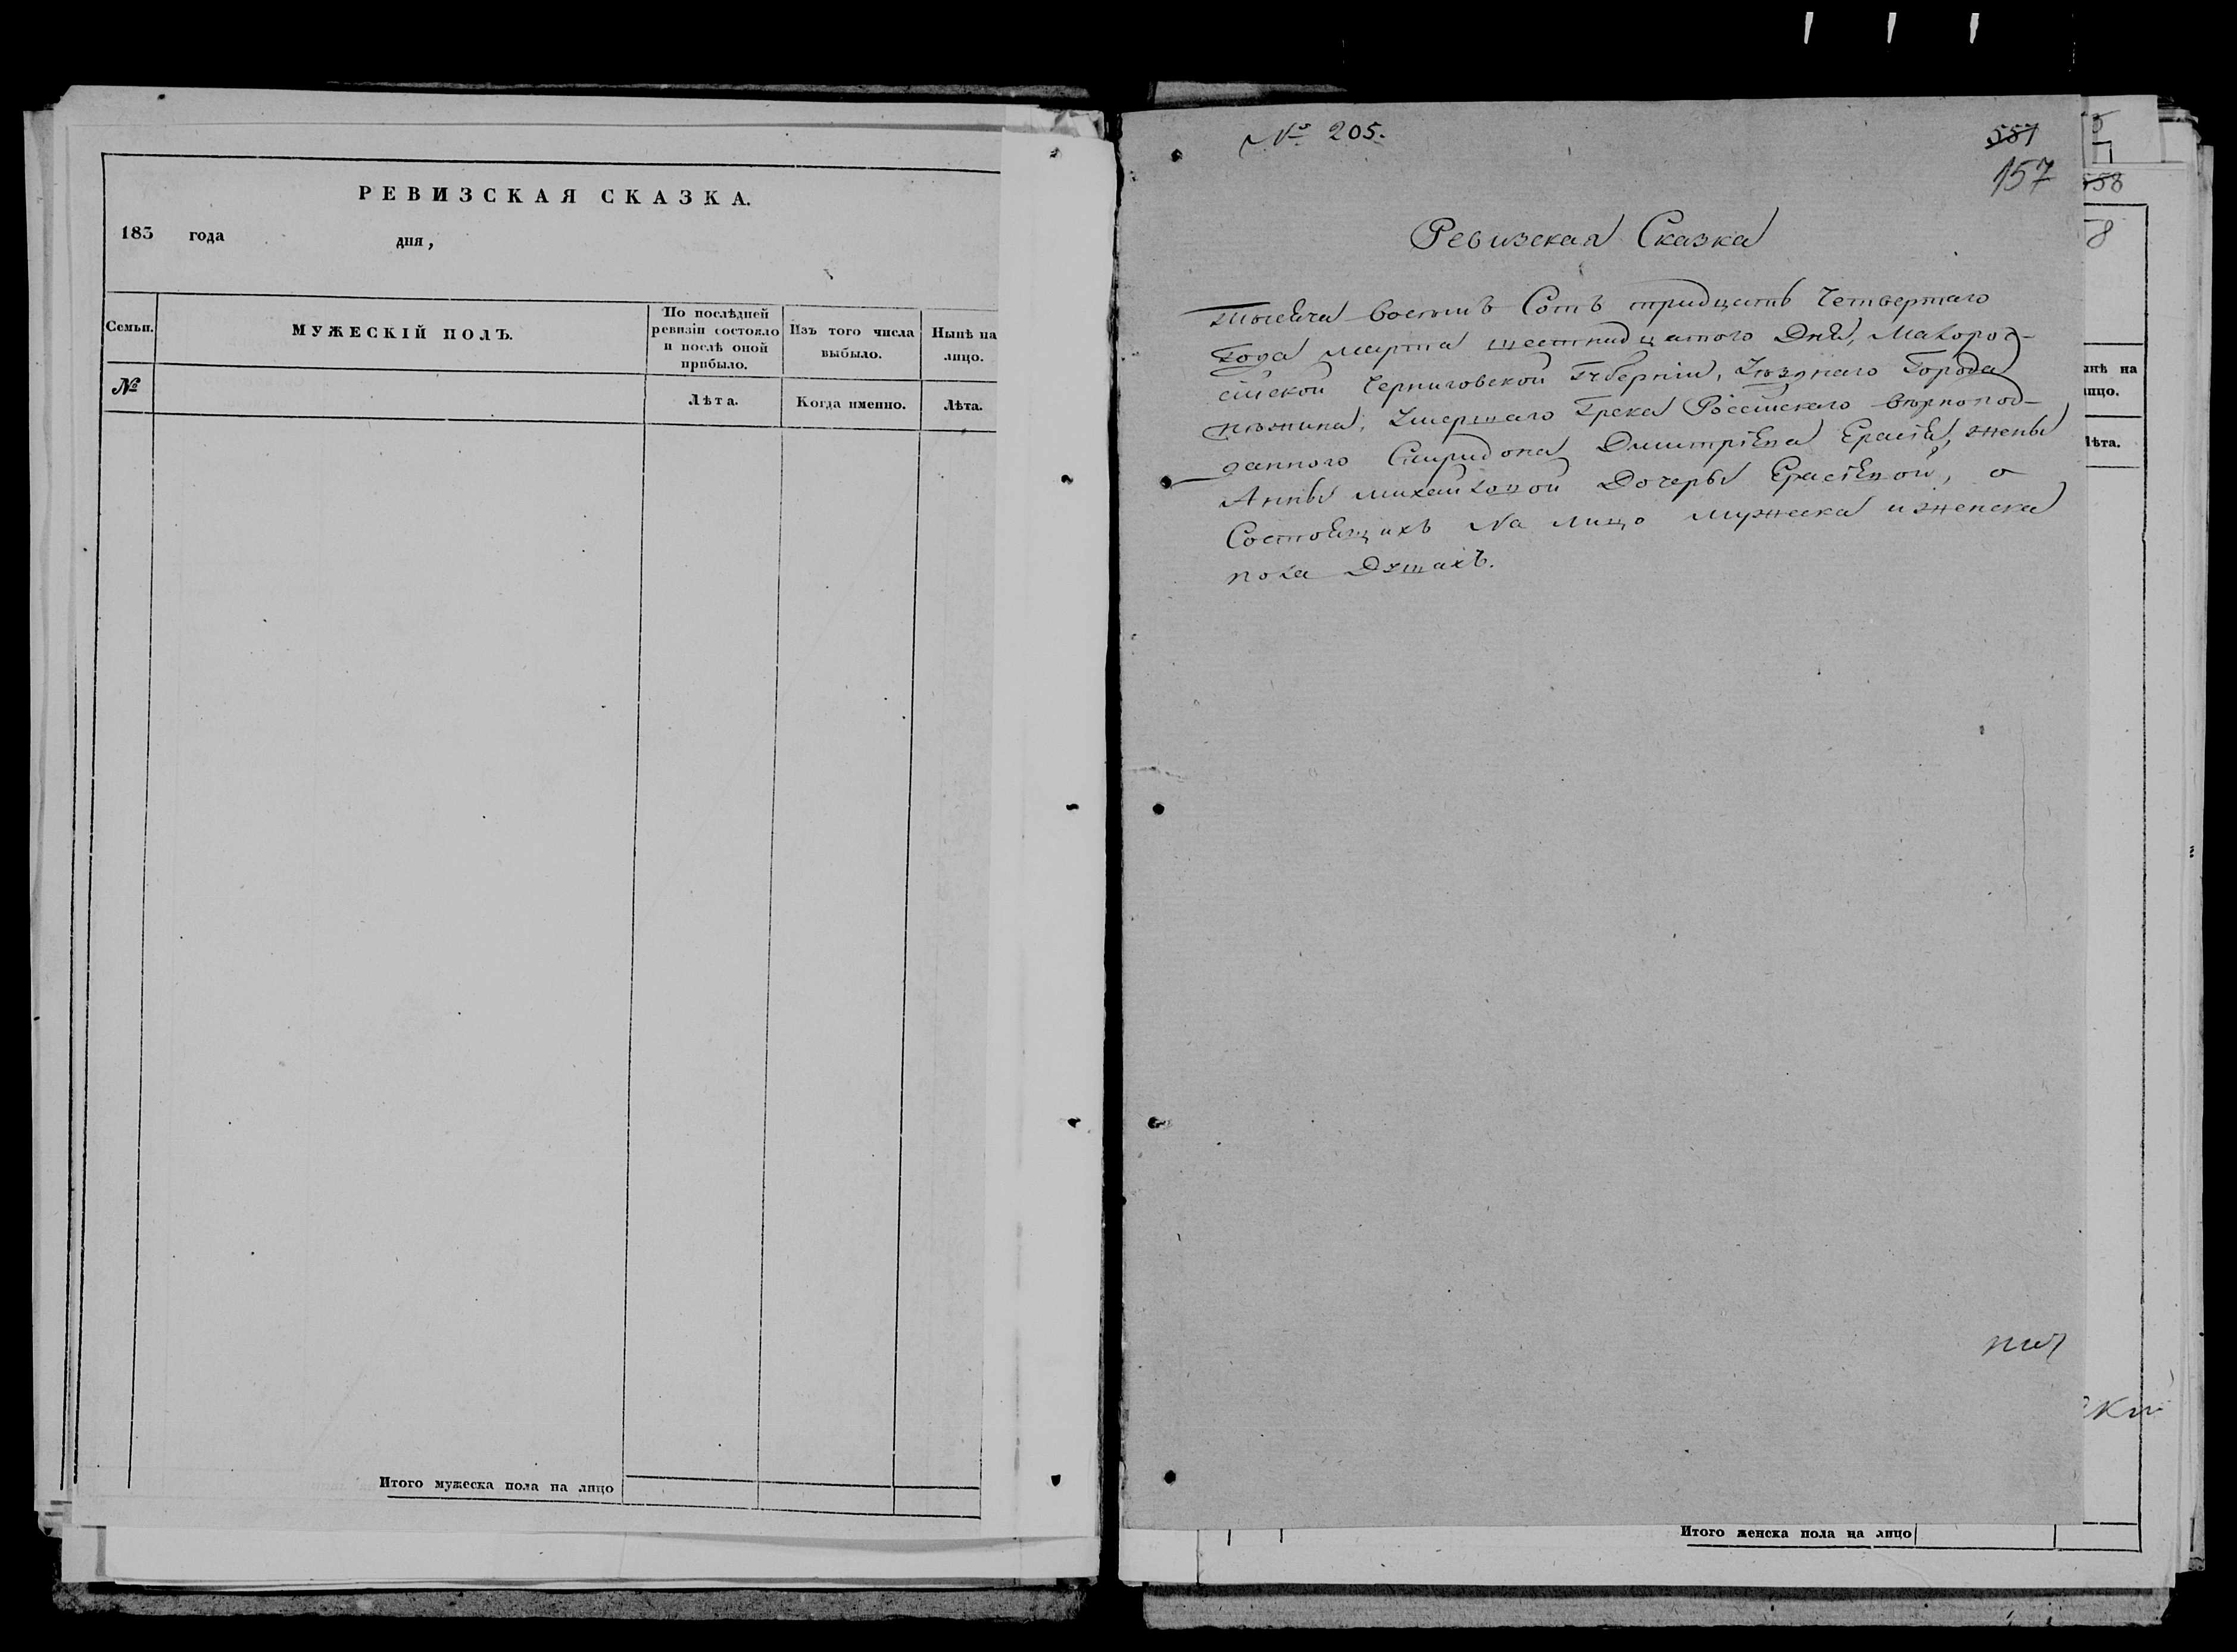 РЕВИЗСКАЯ СКАЗКА.
183 года дня,
Семьи.
МУЖЕСКІЙ ПОЛЪ.
По послѣдней
ревизіи состояло
и послѣ оной
прибыло.
Изъ того числа
выбыло.
Нынѣ на
лицо.
№
Лѣта.
Когда именно.
Лѣта.
Итого мужеска пола на лицо
№ 205.
557
157
Ревизская Сказка
тысяча восемъ Сотъ тридцать Четвертаго
Года марта шестнадцатого Дня, Малорос-
сійской Черниговской Губерніи, Уѣзднаго Города
Нѣжина, Умершаго Грека Россійскаго вѣрнопод-
данного Спиридона Димитріева жены
Анны михайловой Дочеры о
Состоящихъ На лицо мужеска и женска
пола Душахъ.
558
8
нѣ на
ицо.
Лѣта.
Итого женска пола на лицо